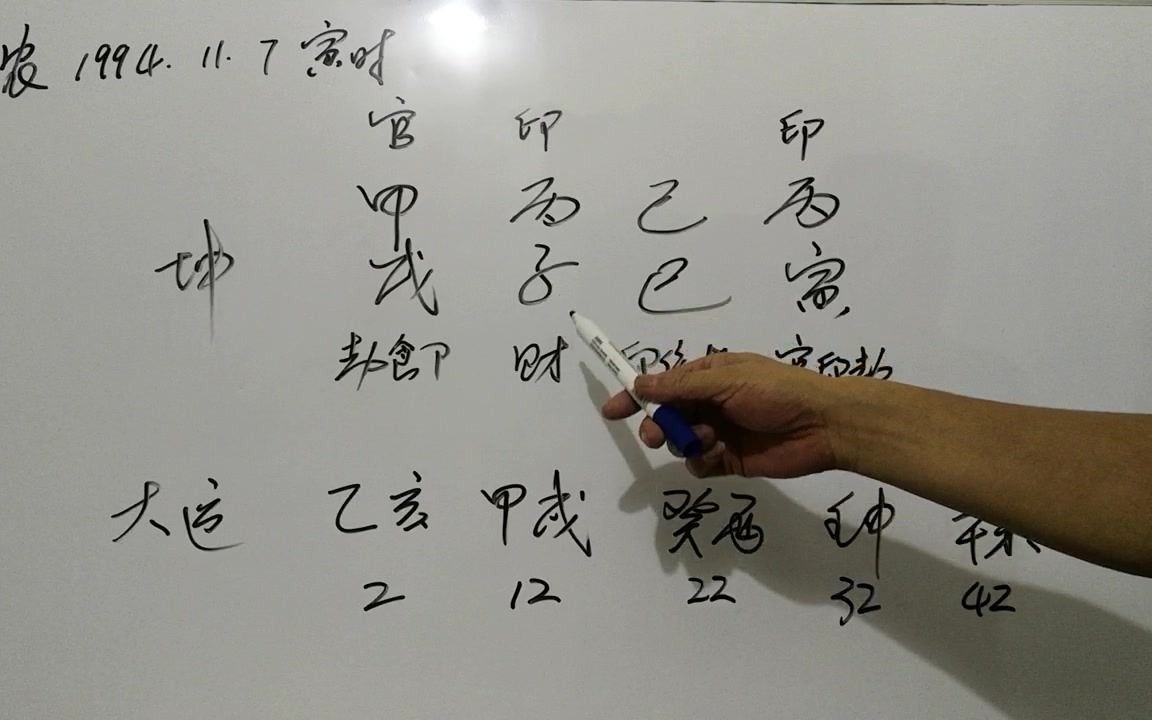 农 1994.11.7 寅时
官 印 印
甲 丙 己 丙
坤 戌 子 巳 寅
劫食卩 财 官印劫
大运 乙亥 甲戌 癸酉 壬申 辛未
2 12 22 32 42